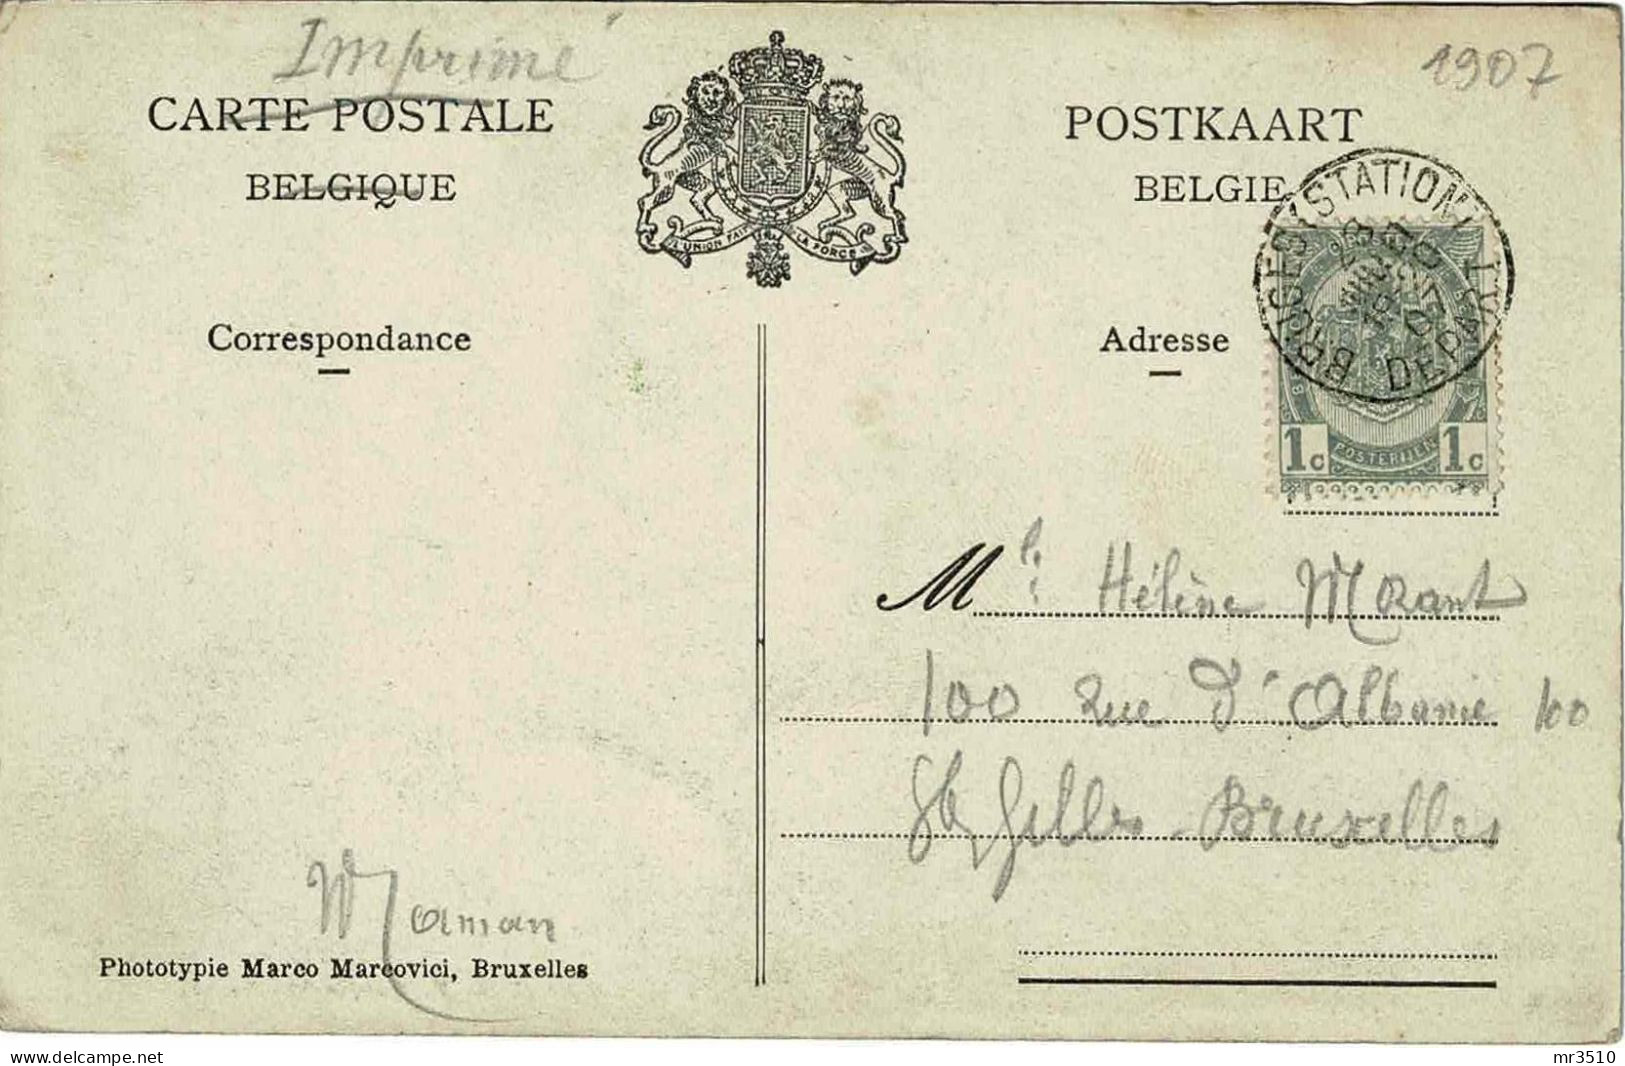 Imprimé
1907
CARTE POSTALE
POSTKAART
BELGIQUE
BELGIE
L'UNION FAIT LA FORCE
BRUGES (STATION)
DEPART
Correspondance
Adresse
1c POSTERIJEN 1c
Mlle Hélène
100 Rue d'Albanie 100
St Gilles-Bruxelles
Maman
Phototypie Marco Marcovici, Bruxelles
www.delcampe.net
mr3510